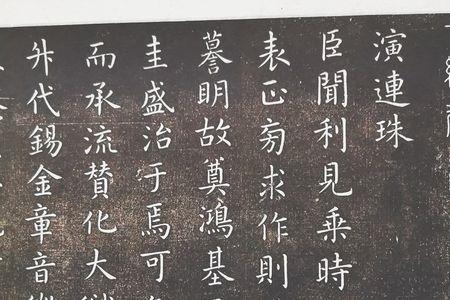 演連珠
臣聞利見乗時
表正旁求作則
謩明故奠鴻基
圭盛治于焉可
而承流賛化大
升代錫金章音